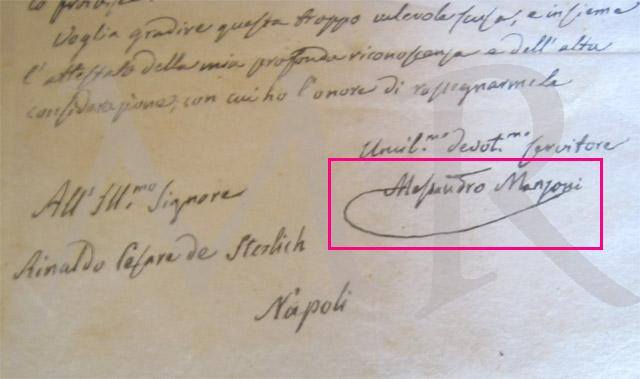 Voglia gradire questa troppo valevole scusa, e insieme
l'attestato della mia profonda riconoscenza e dell'alta
considerazione, con cui ho l'onore di rassegnarmele
Umil.mo devot.mo servitore
Alessandro Manzoni
All'Ill.mo Signore
Rinaldo Cesare de Sterlich
Napoli
MR